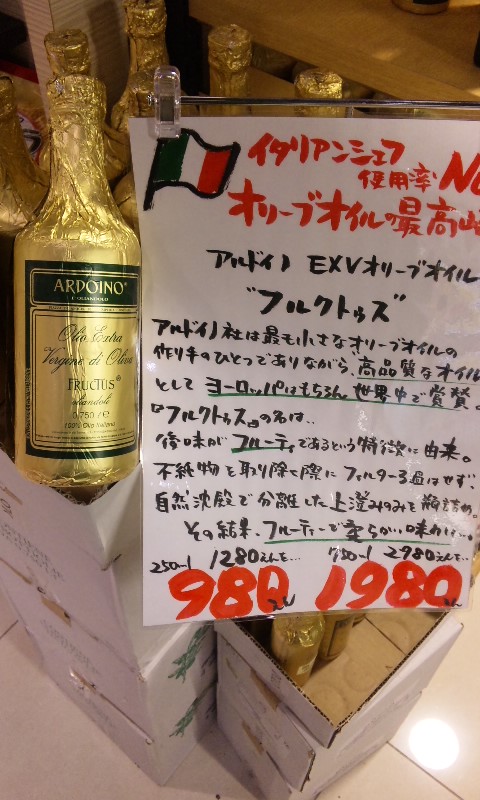 ARDOINO®
Olio Extra
Vergine di Oliva
FRUCTUS®
0,750 l ℮
100% Olio Italiano
イタリアンシェフ
使用率No
オリーブオイルの最高峰
アルドイノ EXVオリーブオイル
"フルクトゥス"
アルドイノ社は最も小さなオリーブオイルの
作り手のひとつでありながら、高品質なオイル
として ヨーロッパはもちろん 世界中で賞賛。
『フルクトゥス』の名は…
後味がフルーティであるという特徴に由来。
不純物を取り除く際にフィルターろ過はせず、
自然沈殿で分離した上澄みのみを瓶詰め。
その結果、フルーティーで柔らかい味わい…。
250ml 1280えんを… 750ml 2980えんを…
980えん 1980えん